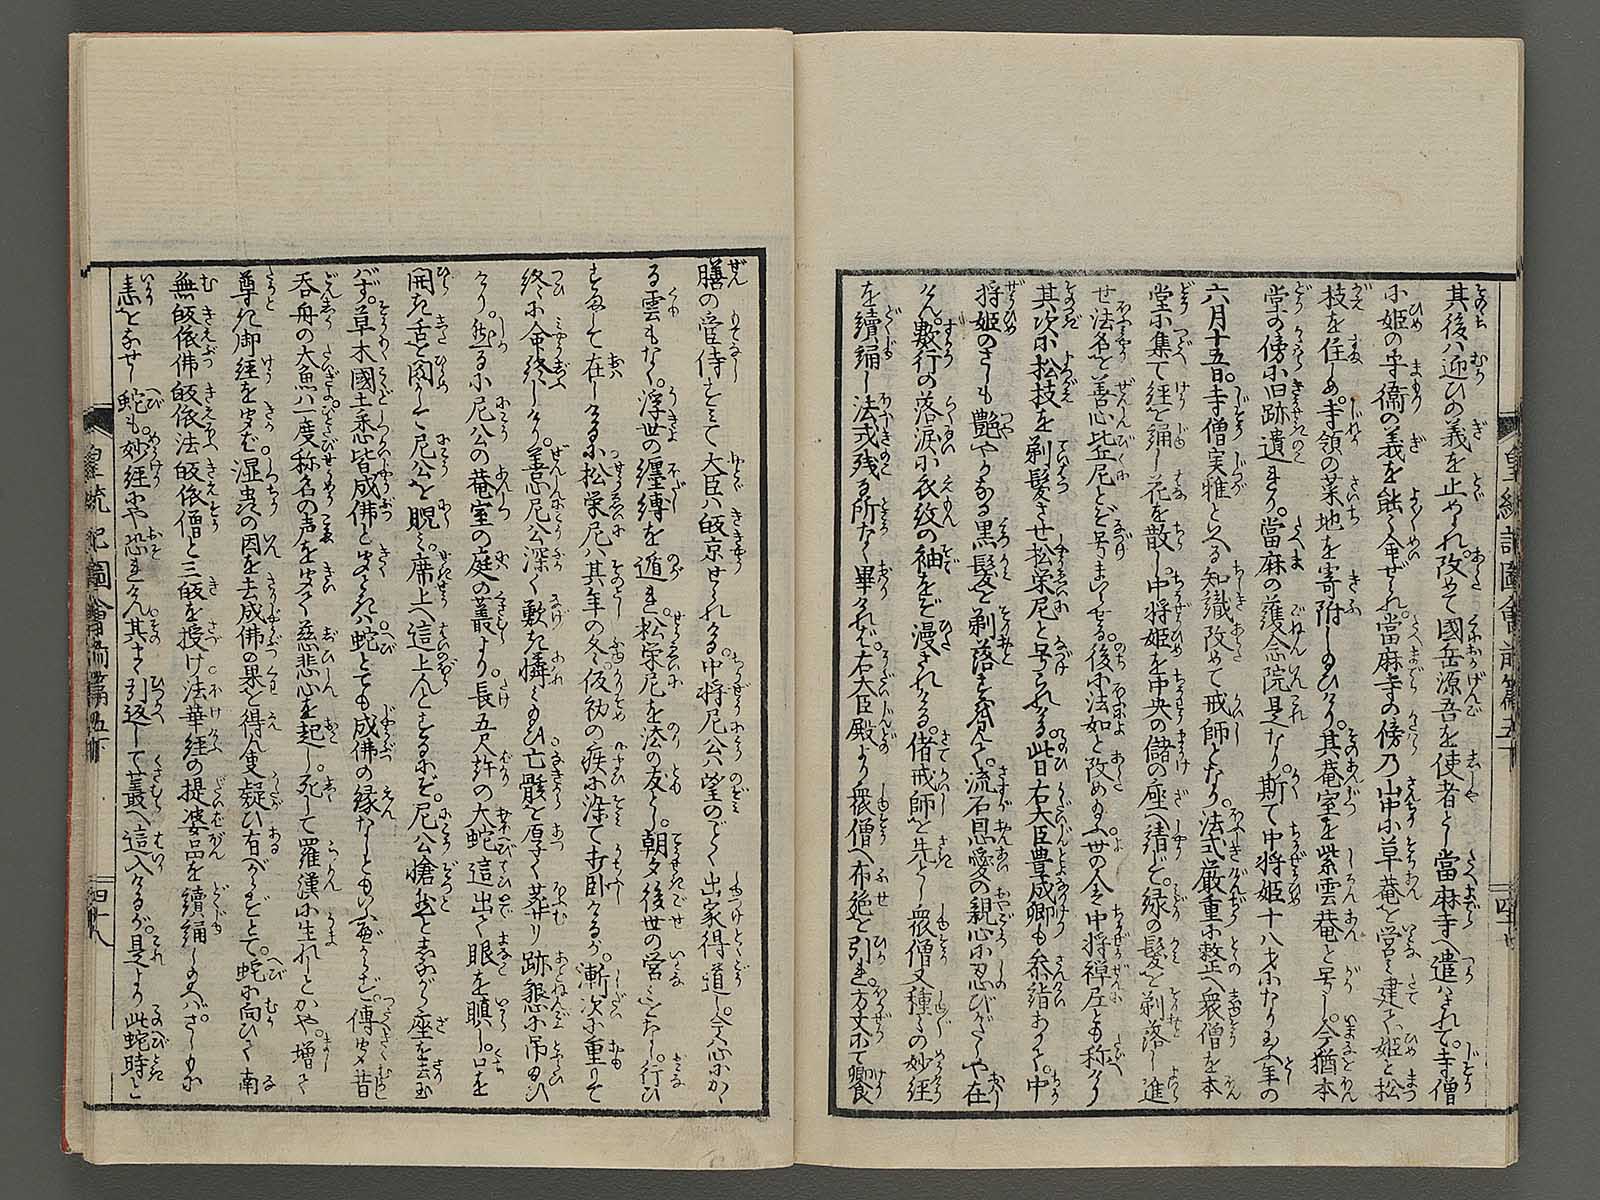 其後ハ迎ひの義を止められ。改めて國岳源吾を使者とし當麻寺へ遣ハされて。寺僧
に姫の守衞の義を能く命ぜられ。當麻寺の傍乃山中に草菴を営ミ建て。姫と松
枝を住しめ。寺領の菜地を寄附し給ひけり。其菴室を紫雲菴と号し。今猶本
堂の傍に旧跡遺れり。當麻の護念院是なり。斯て中将姫十八才になり給ふ年の
六月十五日。寺僧実雅といへる知識改めて戒師となり。法式厳重に整へ衆僧を本
堂に集て経を誦し花を散し。中将姫を中央の儲の座へ請じ。緑の髪を剃落し進
せ法名を善心比丘尼とぞ号まいらせる。後に法如と改め給ふ世の人中将禅尼とも称へけり
其次に松枝を剃髪させ松栄尼と号られける。此日右大臣豊成卿も参詣ありて。中
将姫のさしも艶やかなる黒髪を剃落すを見て。流石恩愛の親心に忍びがたくや在
けん。數行の落涙に衣紋の袖をぞ浸されける。偖戒師を先とし衆僧又種々の妙経
を續誦し法式残る所なく畢けれバ。右大臣殿より衆僧へ布施を引れ。方丈にて饗
膳の管待をなして大臣ハ皈京せられける。中将尼公ハ望のごとく出家得道し。今ハ心にかゝ
る雲もなく。浮世の纏縛を遁れ。松栄尼を法の友とし。朝夕後世の営をなし。行ひ
すまして在しけるに松栄尼ハ其年の冬。仮初の疾に染て打臥けるが。漸次に重りて
終に命終しけり。善心尼公深く歎き憐ミ給ひ亡骸を厚く葬り跡懇に吊給ひ
けり。然るに尼公の菴室の庭の叢より。長五尺許の大蛇這出て眼を瞋し口を
開き舌を閃して尼公を睨ミ。席上へ這上んとするにぞ。尼公愴然としながら座を去玉
ハず。草木國土悉皆成佛と聞ときハ蛇とても成佛の縁なしともいふべからず。傳聞昔
呑舟の大魚ハ一度称名の声を聞て慈悲心を起し。死して羅漢に生れしとかや。増て
尊き御経を聞バ。湿虫の因を去成佛の果を得ん支疑ひ有べからずとて。蛇に向ひて南
無皈依佛皈依法皈依僧と三皈を授け法華経の提婆品を續誦し給へバ。さしもに
恚をなせし蛇も。妙経にや恐れけん。其まゝ引返して叢へ這入けるが。是より此蛇時と
皇統記圖會前篇五下
四十八